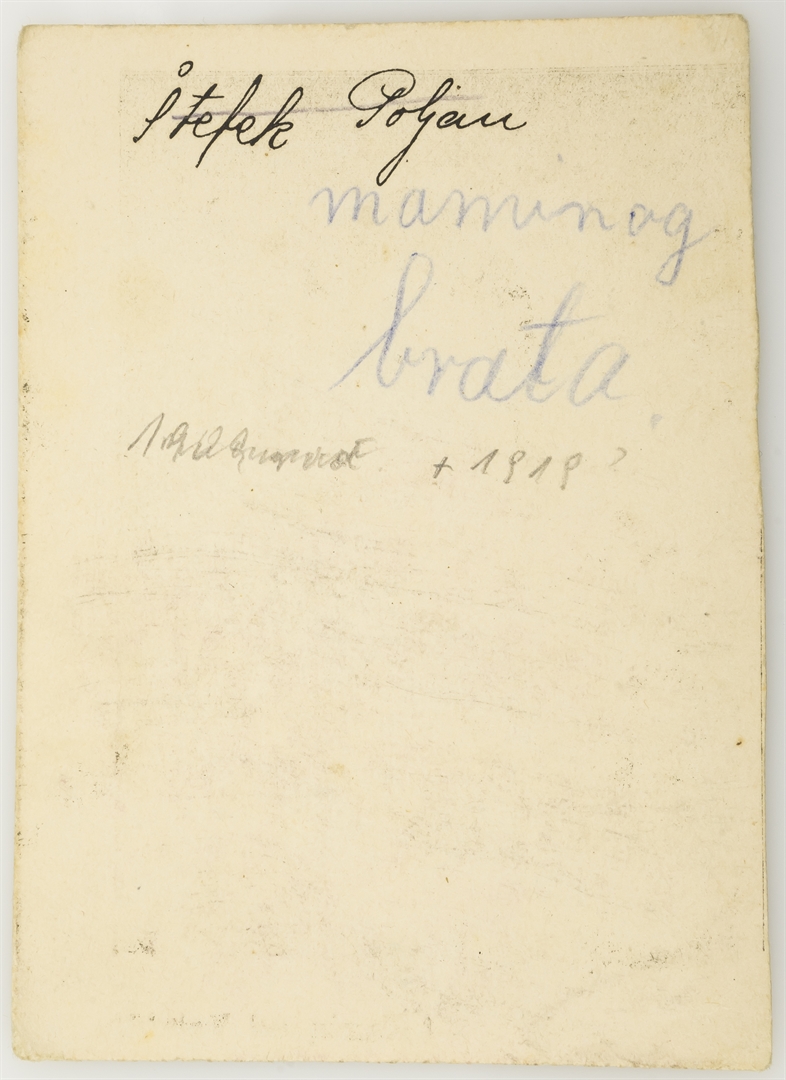 Štefek Poljan
maminog
brata
+ 1919?